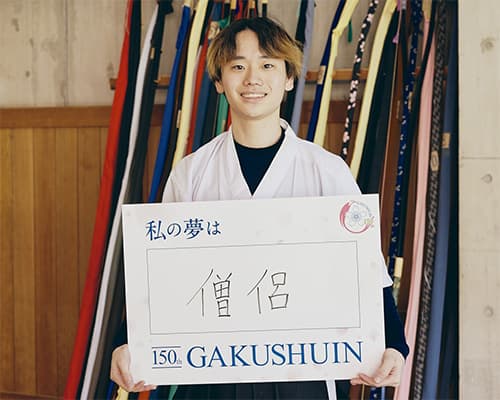 私の夢は
僧侶
150th GAKUSHUIN